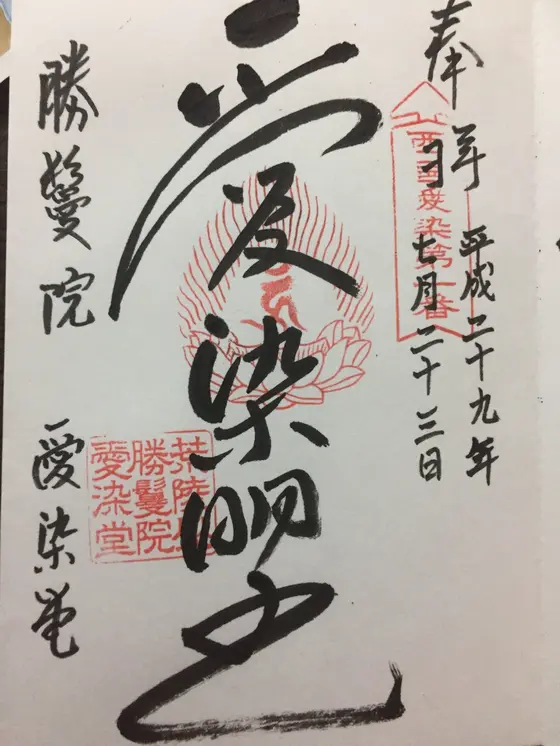 奉拝
平成二十九年
七月二十三日
西国愛染第一番
愛染明王
荒陵山
勝鬘院
愛染堂
勝鬘院 愛染堂